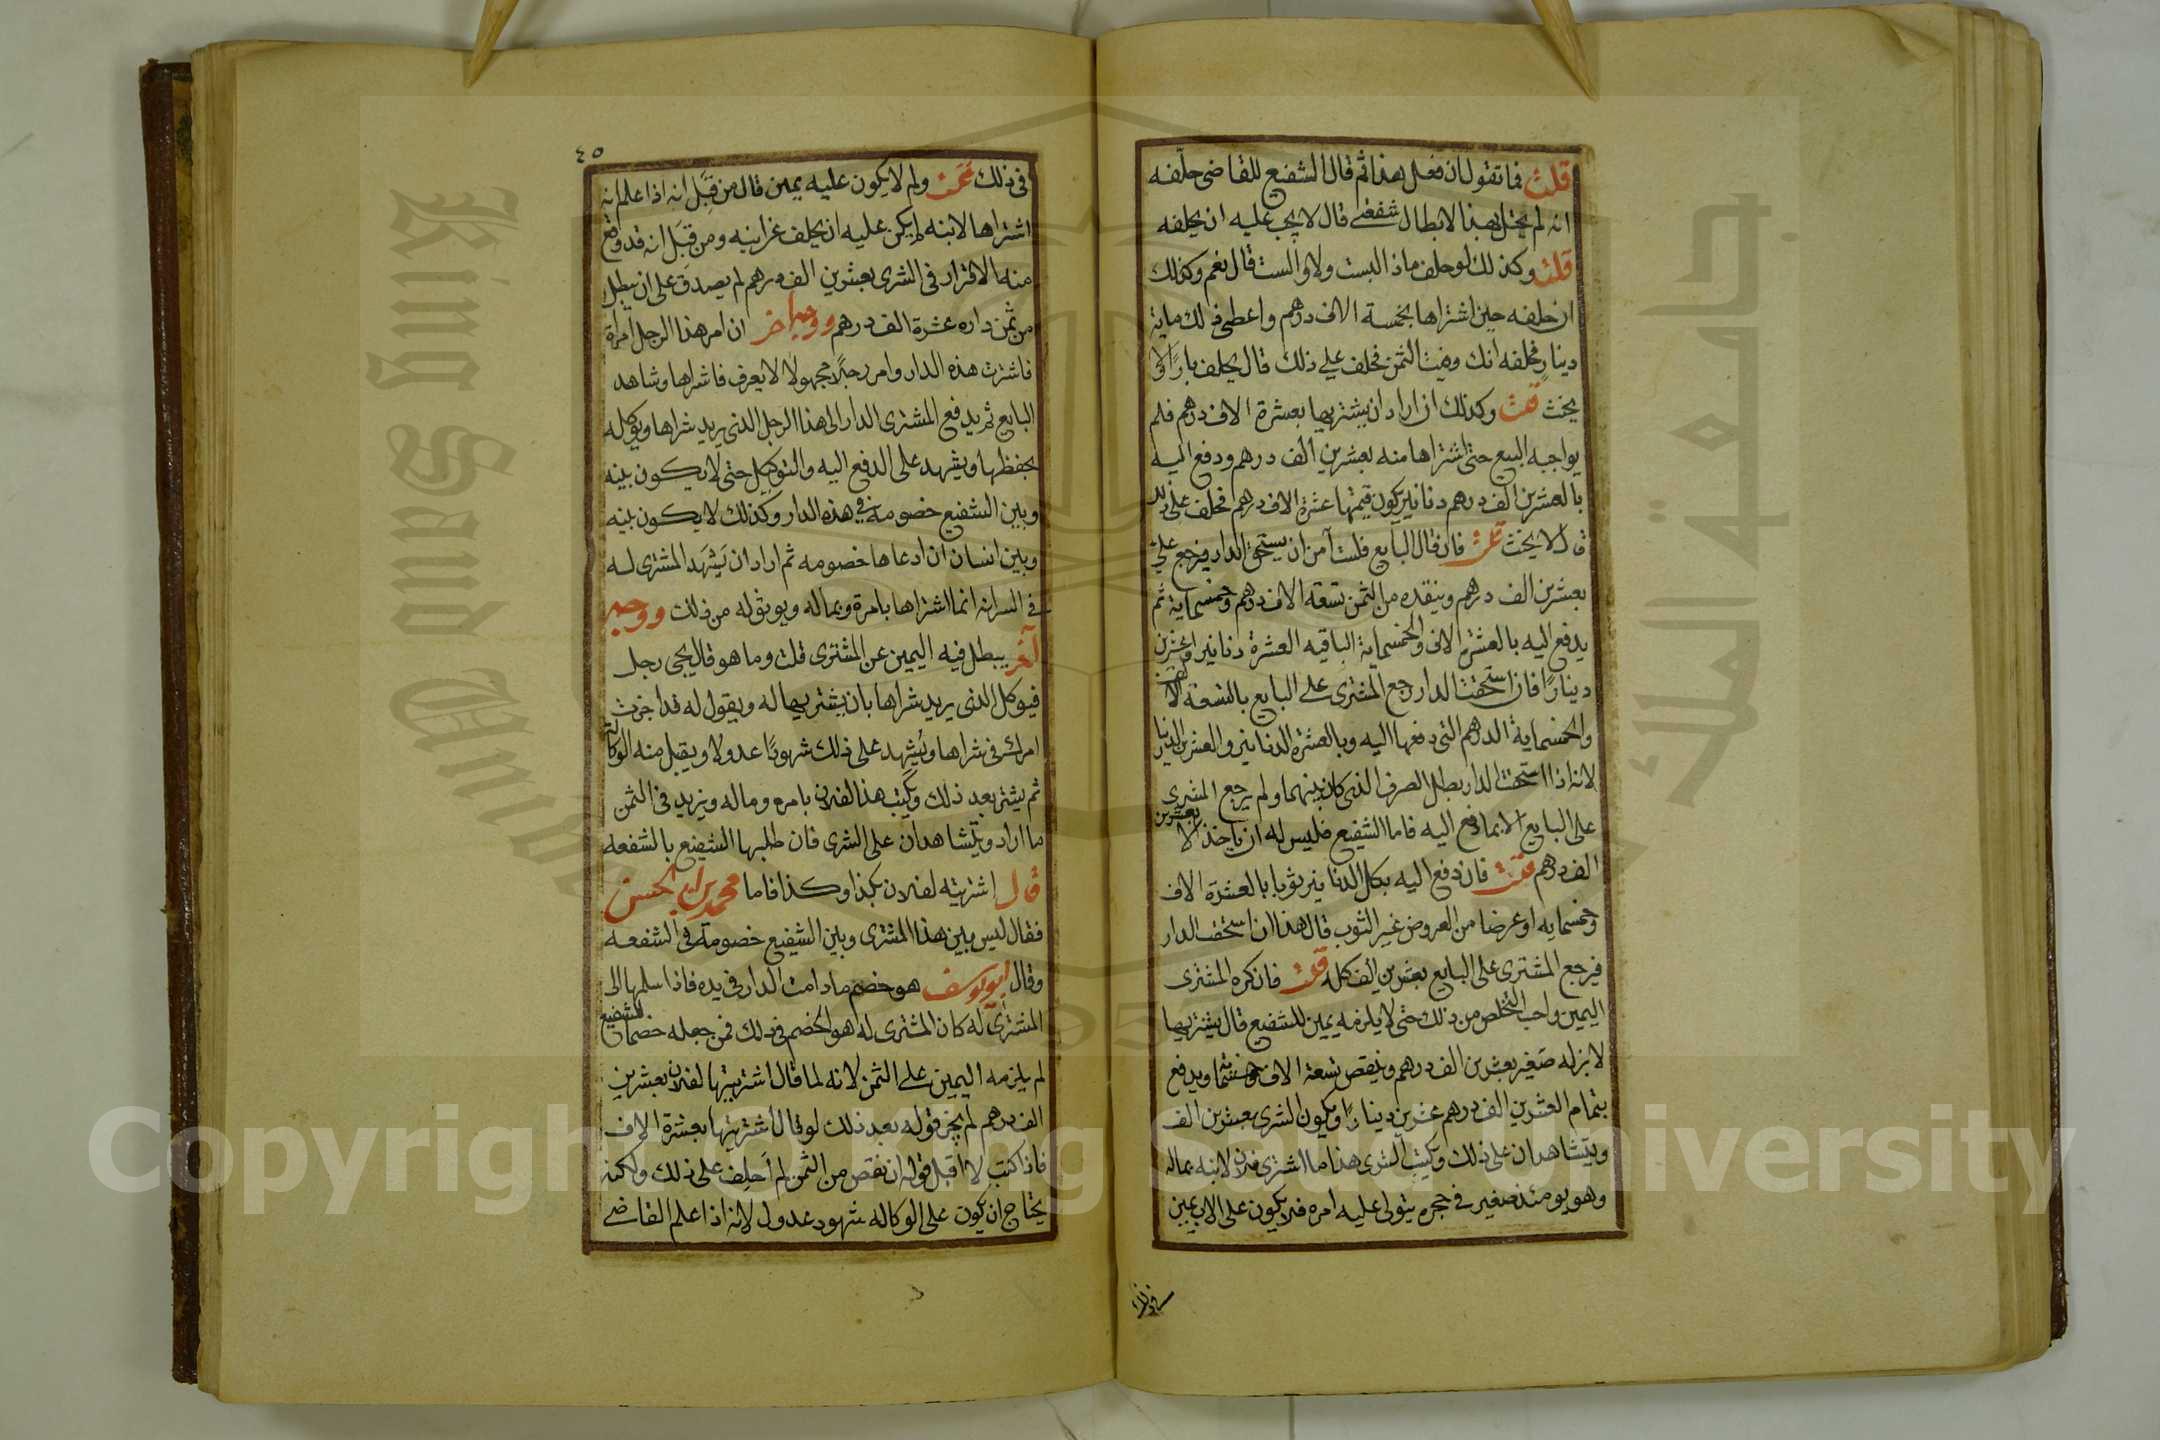 قلت فما تقول ان فعل هذا ثم قال الشفيع للقاضى حلفه
انه لم يحتل بهذا لابطال شفعتي قال لا يجب عليه ان يحلفه
قلت وكذلك لو حلف ماذا البست ولا والست قال نعم وكذلك
ان حلفه حين اشتراها بخمسة الاف درهم واعطى ذلك ماية
دينار فحلفه انك وفيت الثمن فحلف على ذلك قال يحلف بارًا ولا
يحنث قلت وكذلك ان اراد ان يشتريها بعشرة الاف درهم فلم
يواجبه البيع حتى اشتراها منه بعشرين الف درهم ودفع اليه
بالعشرين الف درهم دنانير يكون قيمتها عشرة الاف درهم فحلف على ذلك
قال لا يحنث قلت فان قال البايع فلست آمن ان يستحق الدار فيرجع علي
بعشرين الف درهم وينقده من الثمن تسعة الاف درهم وخمسماية ثم
يدفع اليه بالعشرة الاف والخمسماية الباقيه العشرة دنانير او عشرين
دينارًا فان استحقت الدار رجع المشترى على البايع بالتسعة الاف
والخمسماية الدرهم التى دفعها اليه وبالعشرة الدنانير والعشرين الدينار
لانه اذا استحقت الدار بطل الصرف الذى كان بينهما ولم يرجع المشترى
على البايع الا بما دفع اليه فاما الشفيع فليس له ان ياخذ الا بعشرين
الف درهم قلت فان دفع اليه بكل الدنانير ثوبا بالعشرة الاف
وخمسمايه او عرضا من العروض غير الثوب قال هذا ان استحقت الدار
فيرجع المشترى على البايع بعشرين الف كله قلت فان كره المشترى
اليمين واحب التخلص من ذلك حتى لا يلزمه يمين للشفيع قال يشتريها
لابن له صغير بعشرين الف درهم وينقص تسعة الاف وخمسماية ويدفع
بتمام العشرين الف درهم عشرين دينارًا ويكون الشرى بعشرين الف
ويتشاهدان على ذلك ويكتب الشرى هذا ما اشترى فلان لابنه بماله
وهو يومئذ صغير في حجره يتولى عليه امره فلا يكون على الاب يمين
في ذلك
٤٥
فى ذلك قلت ولم لا يكون عليه يمين قال من قبل انه اذا علم انه
اشتراها لابنه لم يكن عليه ان يحلف عن ابنيه ومن قبل انه قد وقع
منه الاقرار فى الشرى بعشرين الف درهم لم يصدق على ان يبطل
من ثمن داره عشرة الف درهم ووجه اخر ان امر هذا الرجل امراة
فاشترت هذه الدار وامر رجلًا مجهولا لا يعرف فاشراها وشاهد
البايع ثم يدفع المشترى الدار الى هذا الرجل الذى يريد شراها ويوكله
بحفظها ويشهد على الدفع اليه والتوكيل حتى لا يكون بينه
وبين الشفيع خصومة في هذه الدار وكذلك لا يكون بينه
وبين انسان ان ادعاها خصومه ثم اراد ان يشهد المشترى له
في السر انه انما اشتراها بامرة وبماله ويوثق له من ذلك ووجه
آخر يبطل فيه اليمين عن المشترى قلت وما هو قال يجى رجل
فيوكل الذى يريد شراها بان يشتريها له ويقول له قد اخرت
امرك فى شراها ويشهد على ذلك شهودًا عدولا ويقبل منه الوكالة
ثم يشتر بعد ذلك ويكتب هذا لفلان بامره وماله ويزيد فى الثمن
ما اراد ويتشاهدان على الشرى فان طلبها الشفيع بالشفعه
قال اشتريته لفلان بكذا وكذا فاما محمد بن الحسن
فقال ليس بين هذا المشترى وبين الشفيع خصومة فى الشفعه
وقال ابو يوسف هو خصم ما دامت الدار فى يده فاذا سلمها الى
المشترى له كان المشترى له هو الخصم فى ذلك فمن جعله خصمًا للشفيع
لم يلزمه اليمين على الثمن لانه لما قال اشتريتها لفلان بعشرين
الف درهم لم يجز قوله بعد ذلك لو قال اشتريتها بعشرة الاف
فاذا كنت لا اقبل قوله ان نقص من الثمن لم احلف على ذلك ولكنه
يحتاج ان يكون على الوكاله شهود عدول لانه اذا علم القاضى
King Saud University
جامعة الملك
Copyright © King Saud University